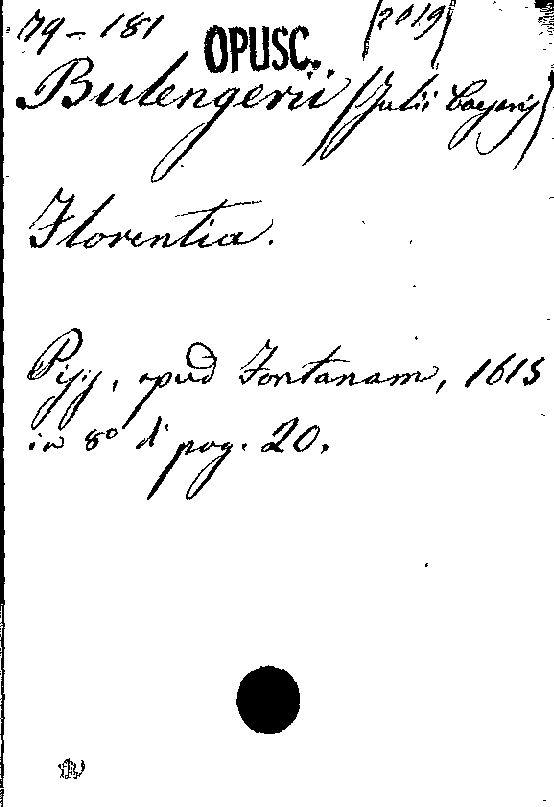 79-181 (2019)
OPUSC.
Bulengerii (Julii Caesaris)
Florentia.
Pisis, apud Fontanam, 1615
in 8° di pag. 20.